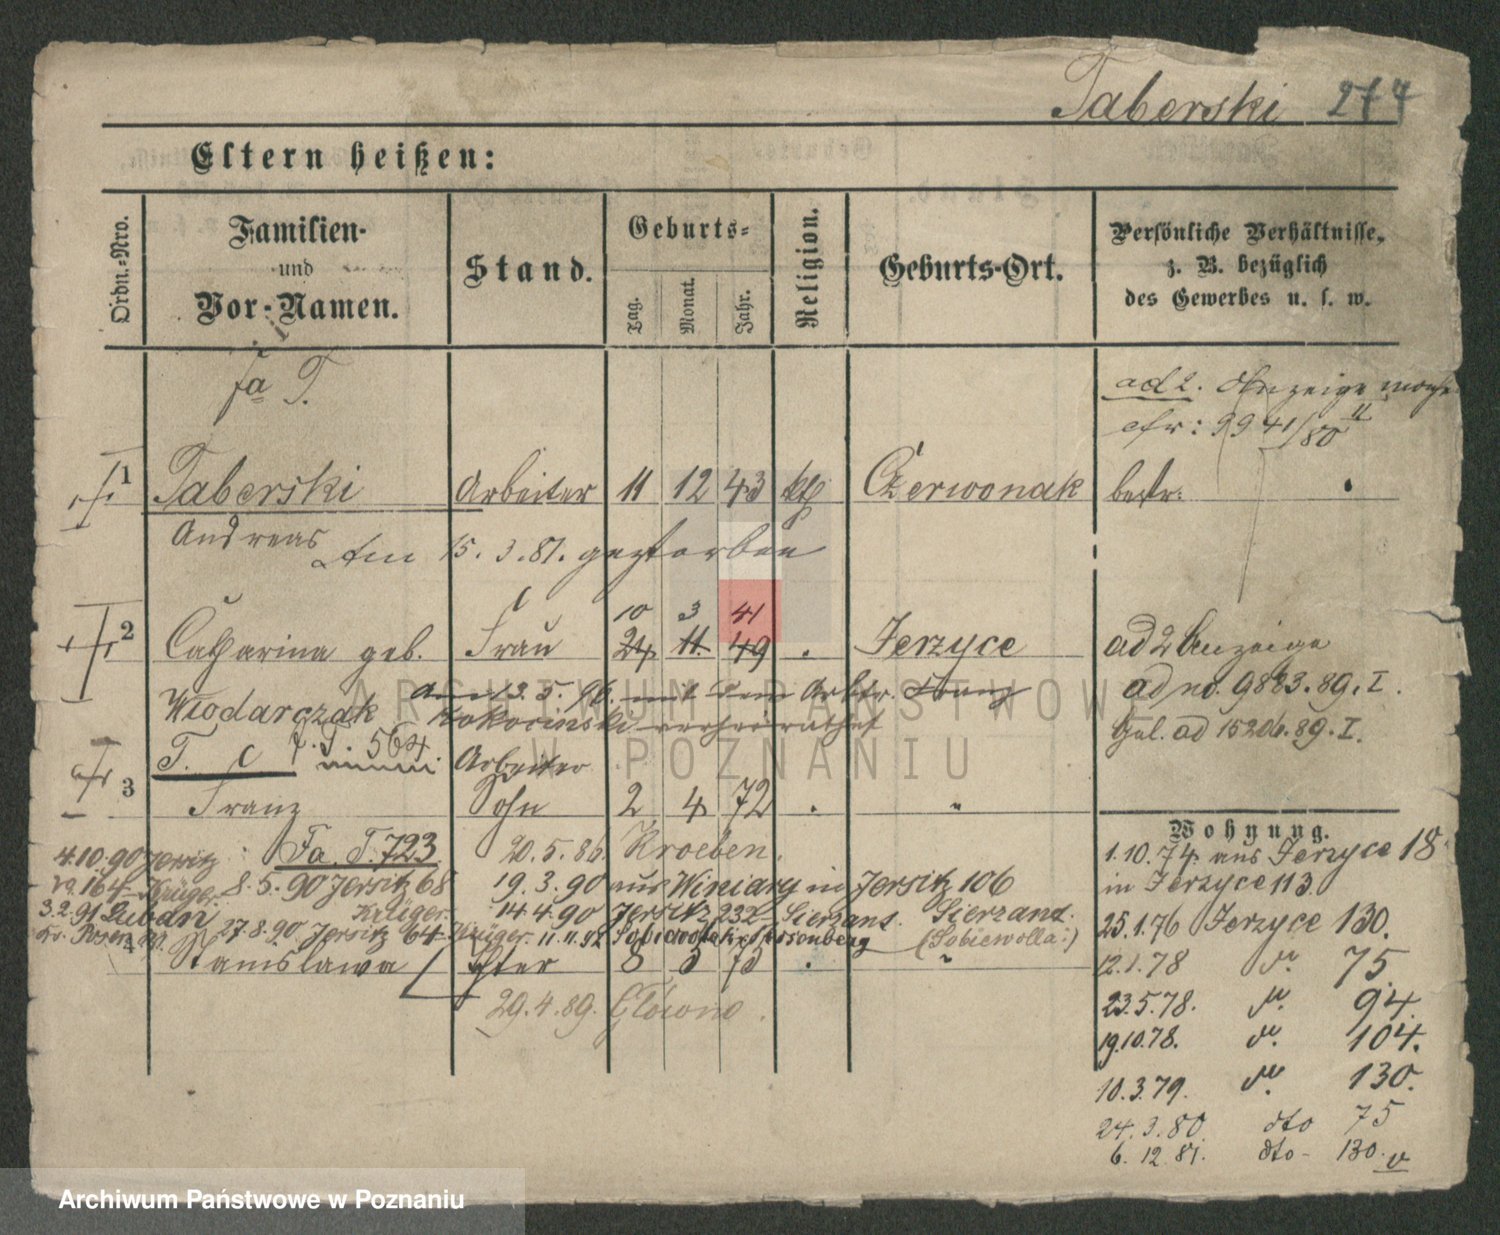 Taberski 277
Eltern heißen:
Ordn.-Nro.
Familien-
und
Vor-Namen.
Stand.
Geburts-
Tag.
Monat.
Jahr.
Religion.
Geburts-Ort.
Persönliche Verhältnisse,
z. B. bezüglich
des Gewerbes u. s. w.
Fa T.
ad 2. Anzeige
cfr: 9941/80 II
1 Taberski Arbeiter 11 12 43 kth Czerwonak bestr.
Andreas Am 15.3.81. gestorben
10 3 41
2 Catharina geb. Frau 24 11 49 Jerzyce ad 2 Anzeige
Włodarczak am 13.5.96. mit dem Arbtr. Franz ad no. 9883.89.I.
Kokocinski verheirathet ad 15206.89.I.
T. 564. Arbeiter
3 Franz Sohn 2 4 72 . "
Wohnung.
Fa. T. 723 20.5.86. Kroeben.
1.10.74. aus Jerzyce 18
4.10.90 Jersitz
164 Krüger. 8.5.90 Jersitz 68 19.3.90 aus Winiary in Jersitz 106
in Jerzyce 113
3.2.91 Luban Krüger. 14.4.90 Jersitz 232 Sierzant. Sierzant.
25.1.76 Jerzyce 130.
Posen 27.8.90 Jersitz 64 Krüger. 11.11.92 (Sobiewolla:)
4 Stanislawa 8 5 75 . "
12.1.78 do. 75.
29.4.89. Główno.
23.5.78. do. 94.
19.10.78. do. 104.
10.3.79. do. 130.
24.3.80 dto 75
6.12.81. dto- 130.
ARCHIWUM PAŃSTWOWE
W POZNANIU
Archiwum Państwowe w Poznaniu